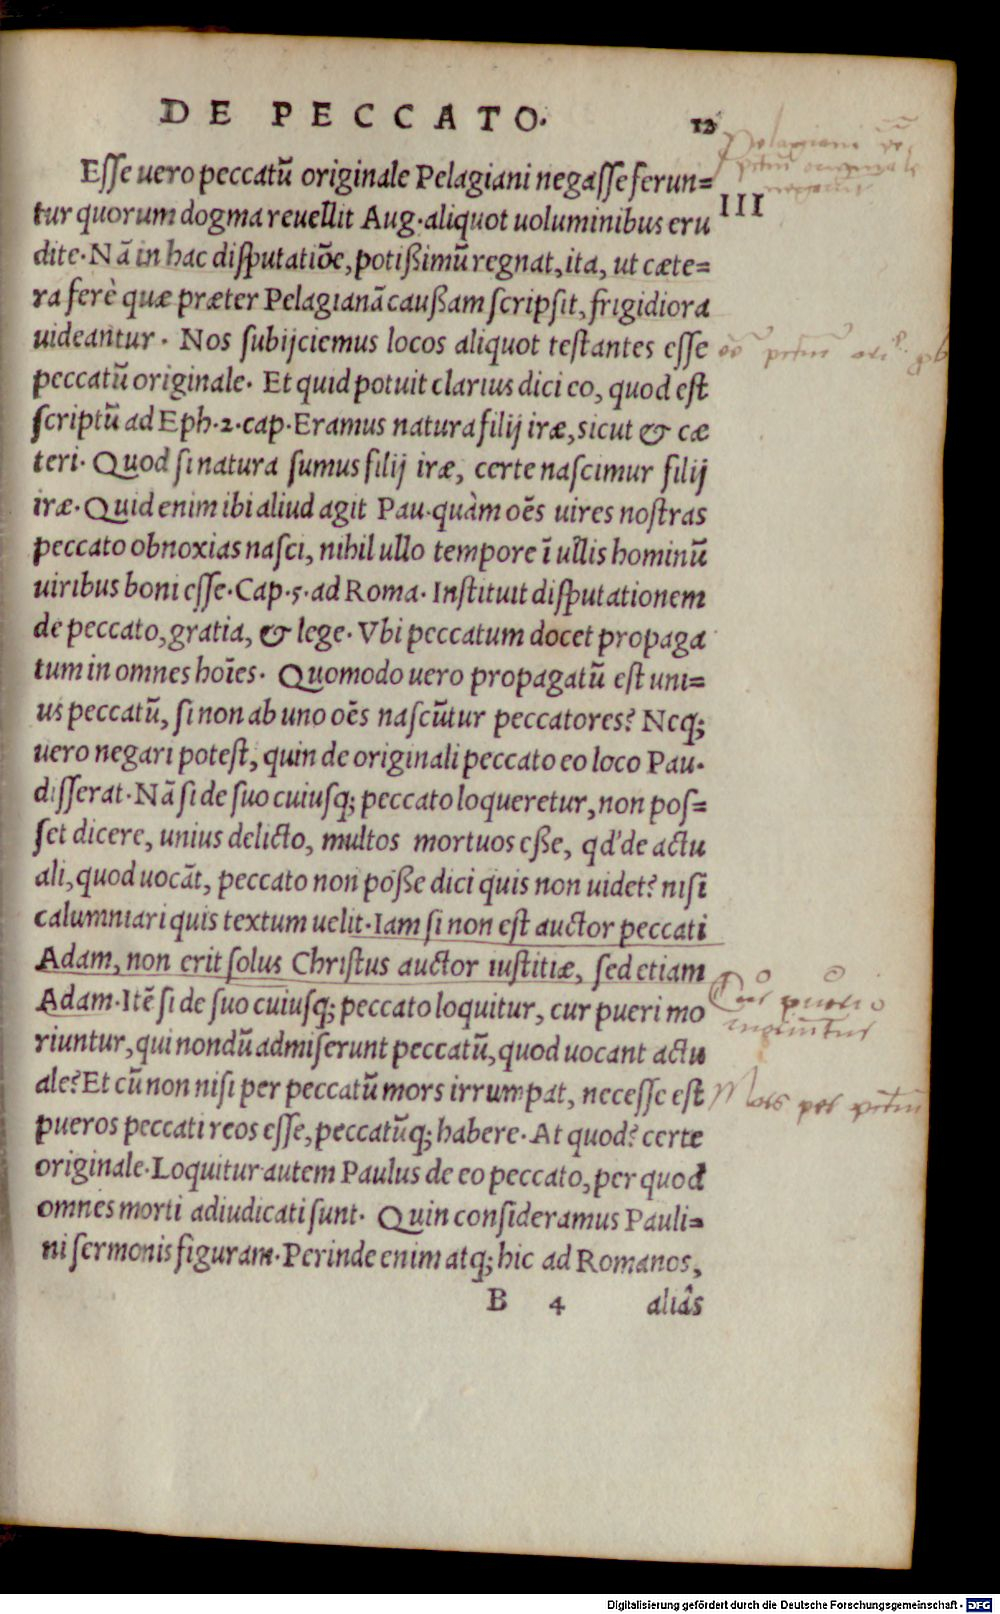 DE PECCATO. 12
Esse uero peccatū originale Pelagiani negasse ferun=
III
tur quorum dogma reuellit Aug. aliquot uoluminibus eru
dite. Nā in hac disputatiōe, potißimū regnat, ita, ut cæte=
ra ferè quæ præter Pelagianā caußam scripsit, frigidiora
uideantur. Nos subijciemus locos aliquot testantes esse
peccatū originale. Et quid potuit clarius dici eo, quod est
scriptū ad Eph. 2. cap. Eramus natura filij iræ, sicut & cæ
teri. Quod si natura sumus filij iræ, certe nascimur filij
iræ. Quid enim ibi aliud agit Pau. quàm oēs uires nostras
peccato obnoxias nasci, nihil ullo tempore ī ullis hominū
uiribus boni esse. Cap. 5. ad Roma. Instituit disputationem
de peccato, gratia, & lege. Vbi peccatum docet propaga
tum in omnes hoīes. Quomodo uero propagatū est uni=
us peccatū, si non ab uno oēs nascūtur peccatores? Neq;
uero negari potest, quin de originali peccato eo loco Pau.
disserat. Nā si de suo cuiusq; peccato loqueretur, non pos=
set dicere, unius delicto, multos mortuos eße, qd' de actu
ali, quod uocāt, peccato non poße dici quis non uidet? nisi
calumniari quis textum uelit. Iam si non est auctor peccati
Adam, non erit solus Christus auctor iustitiæ, sed etiam
Adam. Itē si de suo cuiusq; peccato loquitur, cur pueri mo
riuntur, qui nondū admiserunt peccatū, quod uocant actu
ale? Et cū non nisi per peccatū mors irrumpat, necesse est
pueros peccati reos esse, peccatūq; habere. At quod? certe
originale. Loquitur autem Paulus de eo peccato, per quod
omnes morti adiudicati sunt. Quin consideramus Pauli=
ni sermonis figuram. Perinde enim atq; hic ad Romanos,
B 4 aliâs
Pelagiani
originale
Mors per pctm
Digitalisierung gefördert durch die Deutsche Forschungsgemeinschaft - DFG